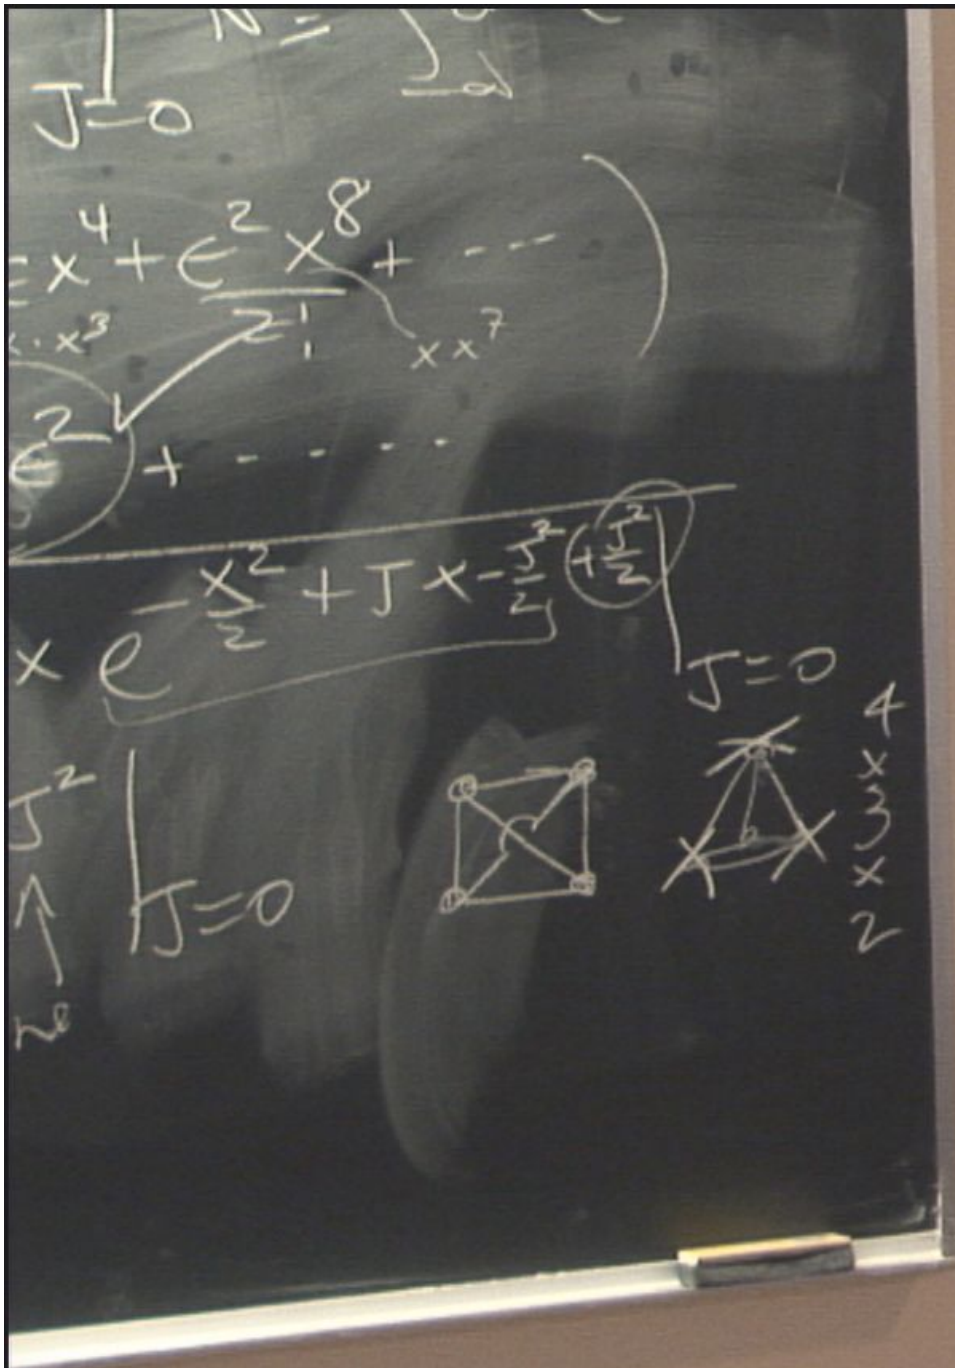 J=0 N = ∫
x⁴ + ϵ² x⁸ / 2! + ---
· x³ x x⁷
ϵ² + - - - -
x e^{-x²/2 + J x - J²/2 (+ J²/2)} |
J=0
J² | J=0
4
x
3
x
2